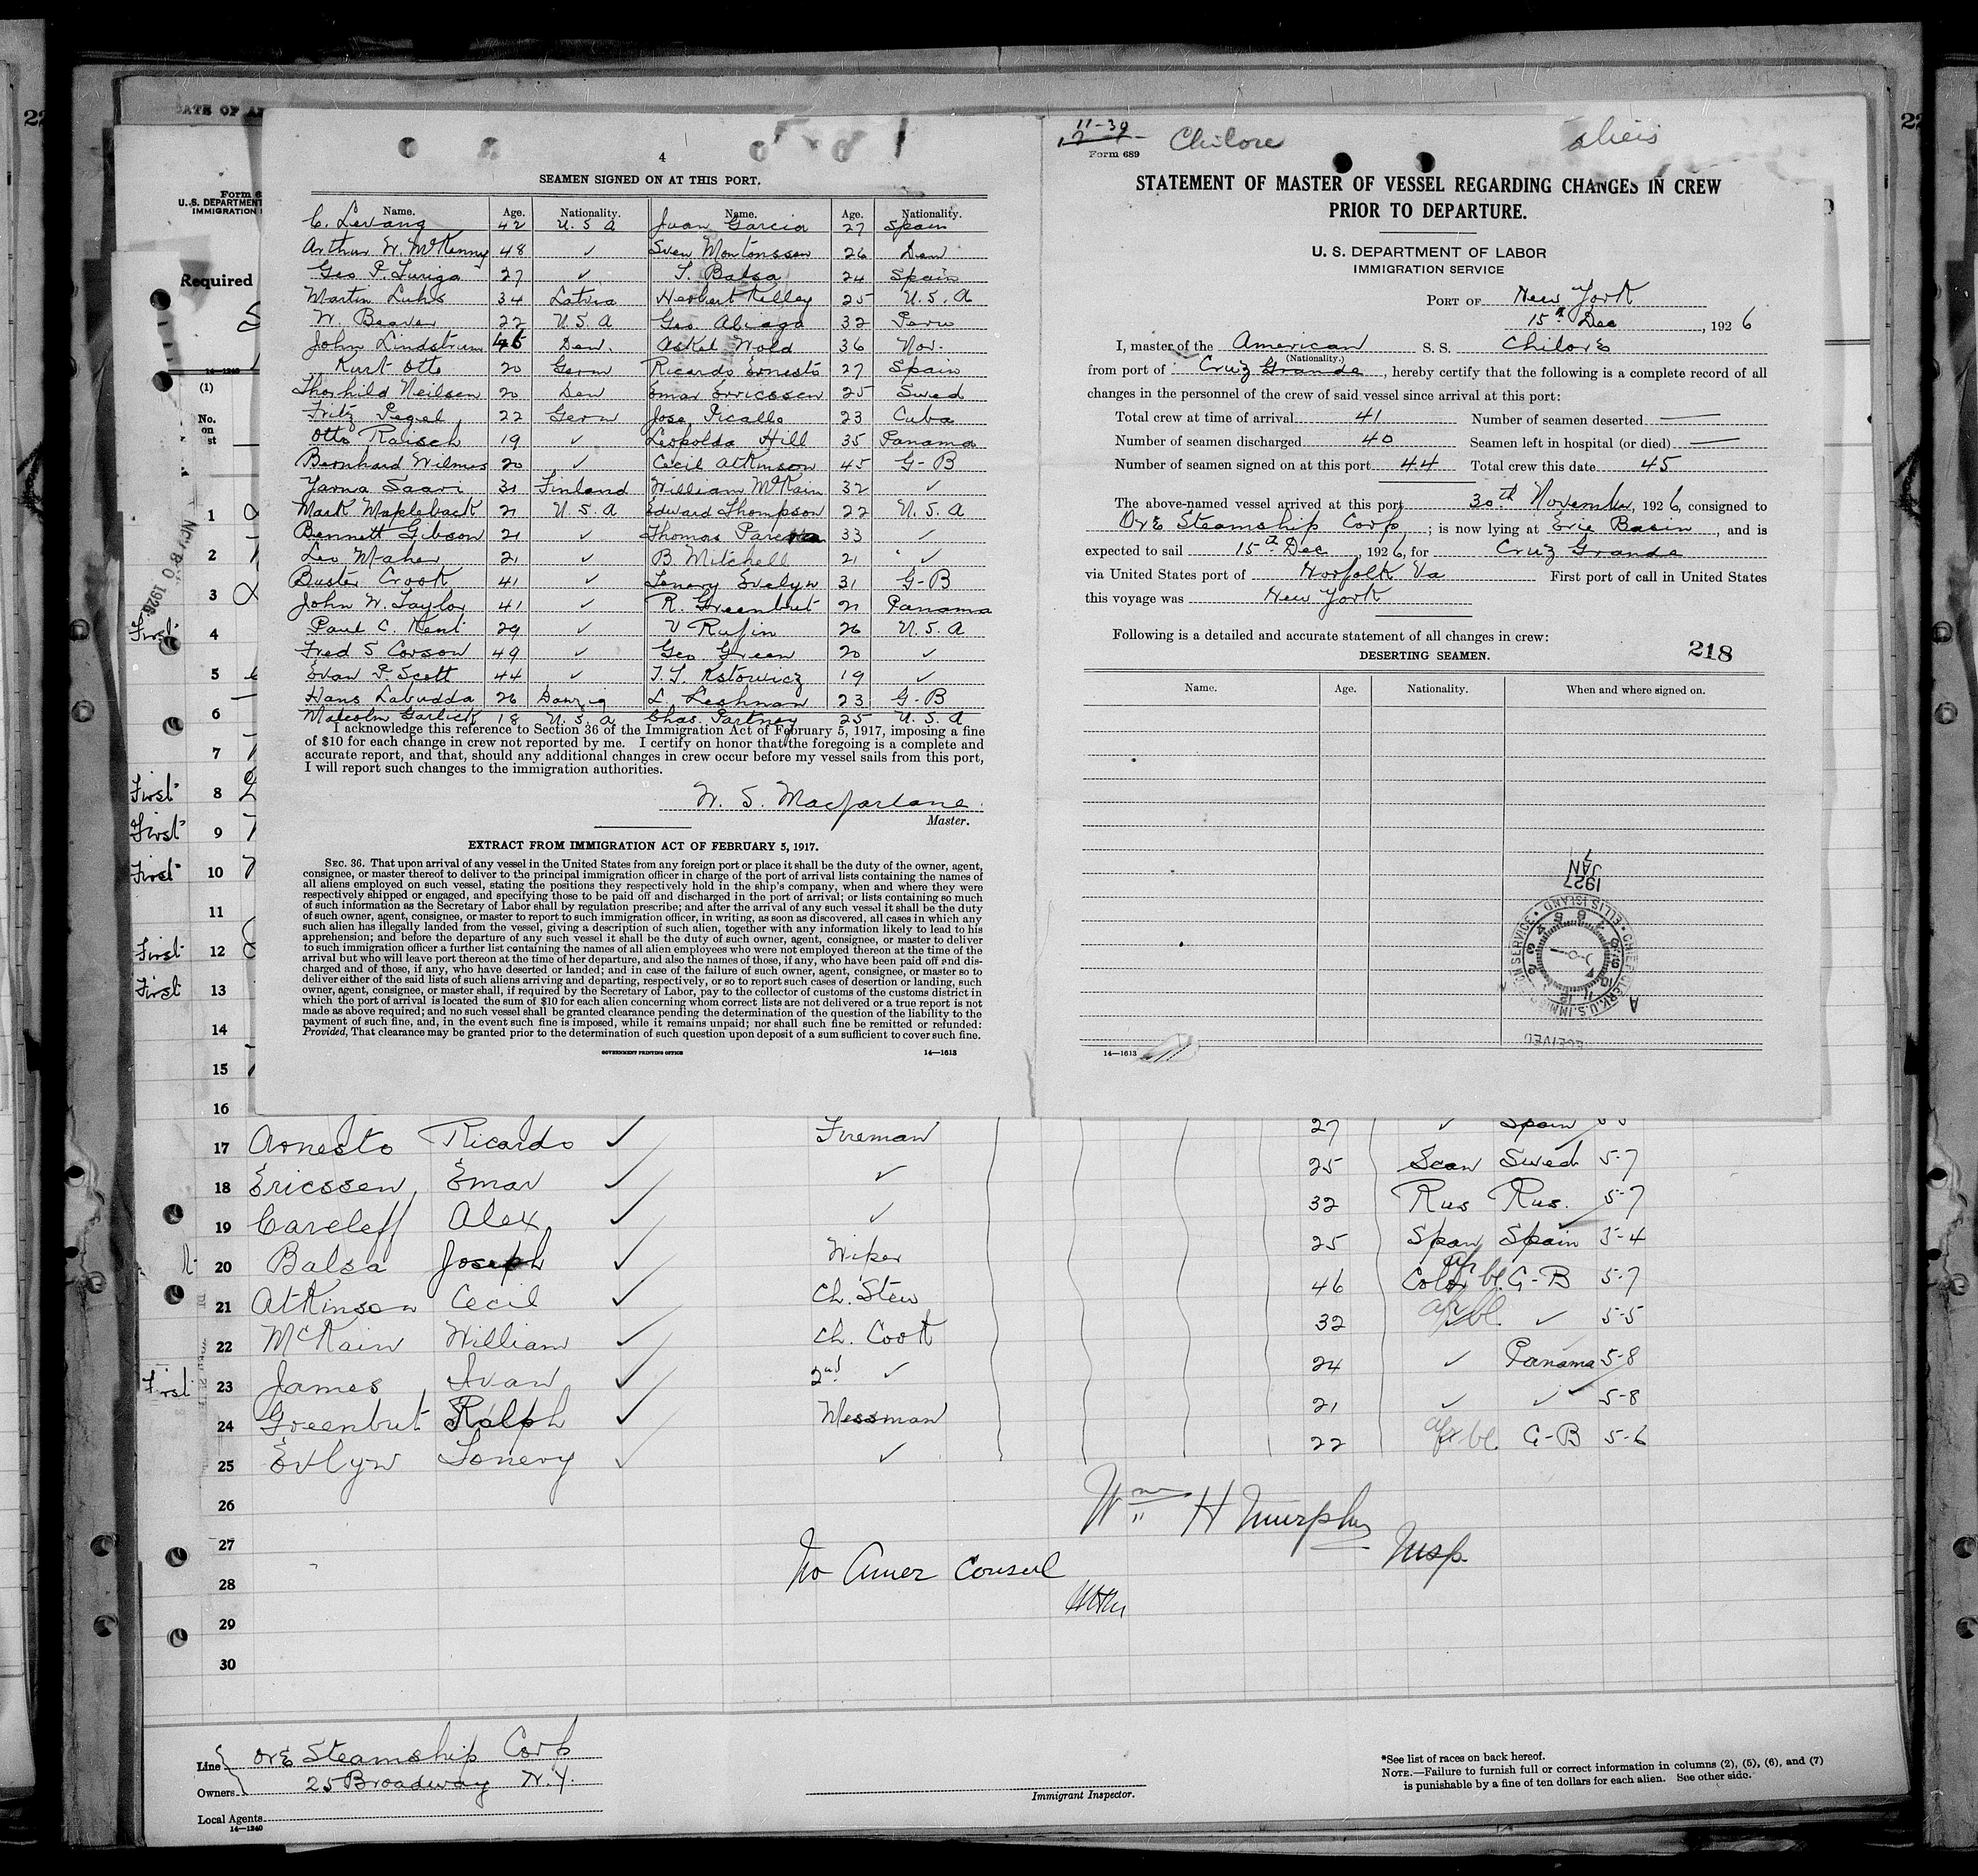 4
SEAMEN SIGNED ON AT THIS PORT.
Name. Age. Nationality. Name. Age. Nationality.
C. Levang 42 U.S.A Juan Garcia 27 Spain
Arthur W. McKenny 48 ✓ Sven Montonssen 26 Den
Geo P. 27 ✓ T. Balsa 24 Spain
Martin Luhs 34 Latvia Herbert Kelley 25 U.S.A
W. Beaver 22 U.S.A Geo. Aliaga 32 Peru
John Lindstrum 45 Den. Askel Wold 36 Nor.
Kurt Otto 20 Germ Ricardo Ernesto 27 Spain
Thorhild Neilsen 20 Den Emar Erricssen 25 Swed
Fritz Pegel 22 Germ Jose Picallo 23 Cuba
Otto Raisch 19 ✓ Leopolda Hill 35 Panama
Bernhard Wilmes 20 ✓ Cecil Atkinson 45 G-B
Yarna Saari 31 Finland William McKain 32 ✓
Mark Mapleback 21 U.S.A Edward Thompson 22 U.S.A
Bennett Gibson 21 ✓ Thomas 33 ✓
Leo Maher 21 ✓ B. Mitchell 21 ✓
Buster Crook 41 ✓ Tenery Evelyn 31 G-B
John W. Taylor 41 ✓ R. Greenbut 21 Panama
Paul C. Kent 29 ✓ V Rufin 26 U.S.A
Fred S Corson 49 ✓ Geo Green 20 ✓
Evan P. Scott 44 ✓ T.T. Kstowicz 19 ✓
Hans Labudda 26 Danzig L. Leshman 23 G-B
Malcolm Garlick 18 U.S.A Chas. Partney 25 U.S.A
I acknowledge this reference to Section 36 of the Immigration Act of February 5, 1917, imposing a fine
of $10 for each change in crew not reported by me. I certify on honor that the foregoing is a complete and
accurate report, and that, should any additional changes in crew occur before my vessel sails from this port,
I will report such changes to the immigration authorities.
W. S. Macfarlane
Master.
EXTRACT FROM IMMIGRATION ACT OF FEBRUARY 5, 1917.
SEC. 36. That upon arrival of any vessel in the United States from any foreign port or place it shall be the duty of the owner, agent,
consignee, or master thereof to deliver to the principal immigration officer in charge of the port of arrival lists containing the names of
all aliens employed on such vessel, stating the positions they respectively hold in the ship's company, when and where they were
respectively shipped or engaged, and specifying those to be paid off and discharged in the port of arrival; or lists containing so much
of such information as the Secretary of Labor shall by regulation prescribe; and after the arrival of any such vessel it shall be the duty
of such owner, agent, consignee, or master to report to such immigration officer, in writing, as soon as discovered, all cases in which any
such alien has illegally landed from the vessel, giving a description of such alien, together with any information likely to lead to his
apprehension; and before the departure of any such vessel it shall be the duty of such owner, agent, consignee, or master to deliver
to such immigration officer a further list containing the names of all alien employees who were not employed thereon at the time of the
arrival but who will leave port thereon at the time of her departure, and also the names of those, if any, who have been paid off and dis-
charged and of those, if any, who have deserted or landed; and in case of the failure of such owner, agent, consignee, or master so to
deliver either of the said lists of such aliens arriving and departing, respectively, or so to report such cases of desertion or landing, such
owner, agent, consignee, or master shall, if required by the Secretary of Labor, pay to the collector of customs of the customs district in
which the port of arrival is located the sum of $10 for each alien concerning whom correct lists are not delivered or a true report is not
made as above required; and no such vessel shall be granted clearance pending the determination of the question of the liability to the
payment of such fine, and, in the event such fine is imposed, while it remains unpaid; nor shall such fine be remitted or refunded:
Provided, That clearance may be granted prior to the determination of such question upon deposit of a sum sufficient to cover such fine.
GOVERNMENT PRINTING OFFICE 14—1613
11-39
Form 689
Chilore
STATEMENT OF MASTER OF VESSEL REGARDING CHANGES IN CREW
PRIOR TO DEPARTURE.
U. S. DEPARTMENT OF LABOR
IMMIGRATION SERVICE
PORT OF New York
15th Dec, 1926
I, master of the American S. S. Chilore
(Nationality.)
from port of Cruz Grande, hereby certify that the following is a complete record of all
changes in the personnel of the crew of said vessel since arrival at this port:
Total crew at time of arrival 41 Number of seamen deserted —
Number of seamen discharged 40 Seamen left in hospital (or died) —
Number of seamen signed on at this port 44 Total crew this date 45
The above-named vessel arrived at this port 30th November, 1926, consigned to
Ore Steamship Corp; is now lying at Erie Basin, and is
expected to sail 15th Dec, 1926, for Cruz Grande
via United States port of Norfolk Va First port of call in United States
this voyage was New York
Following is a detailed and accurate statement of all changes in crew:
218
DESERTING SEAMEN.
Name. Age. Nationality. When and where signed on.
1927
JAN
7
CHIEF CLERK U.S. IMMIGRATION SERVICE ELLIS ISLAND
RECEIVED
14—1613
DATE OF
Form 6
U. S. DEPARTMENT
IMMIGRATION
Required
14—1240
(1)
No.
on
st
1
2
3
First 4
5
6
7
First 8
First 9
First 10
11
First 12
First 13
14
15
16
27 ✓ Spain
17 Arnesto Ricardo ✓ Fireman
25 Scan Swed 5-7
18 Ericssen, Emar ✓ ✓
32 Rus Rus. 5-7
19 Careleff Alex ✓ ✓
25 Span Spain 5-4
20 Balsa Joseph ✓ Wiper
46 bl. G-B 5-7
21 Atkinson Cecil ✓ Ch. Stew
32 bl. ✓ 5-5
22 McKain William ✓ Ch. Cook
24 ✓ Panama 5-8
First 23 James, Ivan ✓ 2nd ✓
21 ✓ ✓ 5-8
24 Greenbut Ralph ✓ Messman
22 bl. G-B 5-6
25 Evlyn Tenery ✓ ✓
26
Wm H Murphy
Insp.
27
No Amer Consul
28
29
30
Line Ore Steamship Corp
Owners 25 Broadway N.Y.
Local Agents
14—1240
Immigrant Inspector.
*See list of races on back hereof.
NOTE.—Failure to furnish full or correct information in columns (2), (5), (6), and (7)
is punishable by a fine of ten dollars for each alien. See other side.